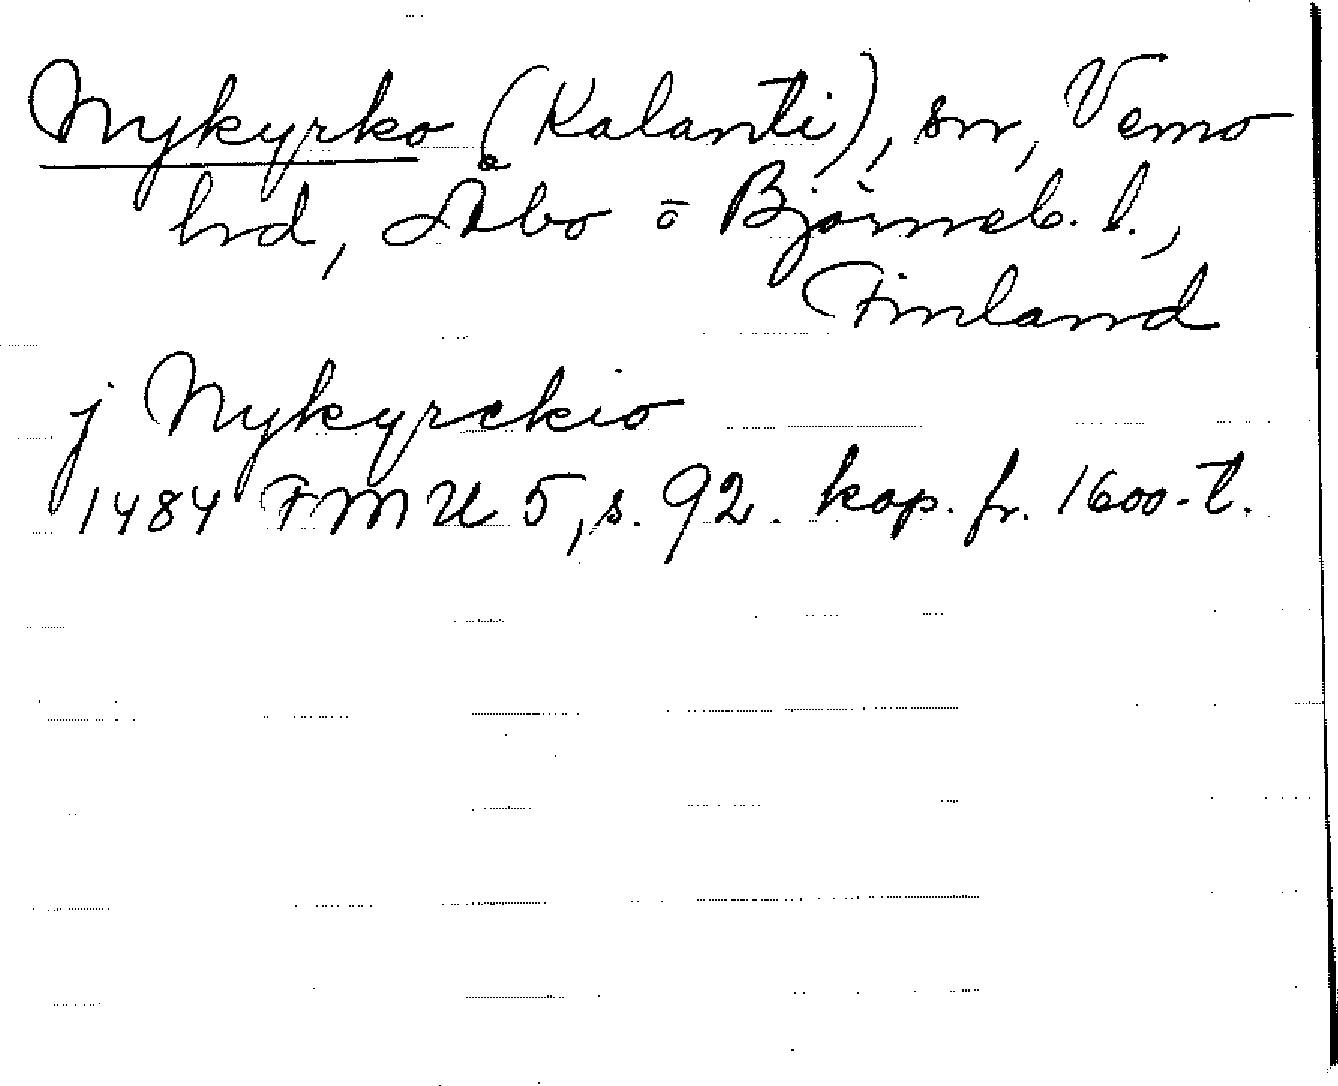 Nykyrko (Kalanti), sn, Vemo
hd, Åbo o Björneb. l.,
Finland
j Nykyrckio
1484 FMU 5, s. 92. kop. fr. 1600-t.